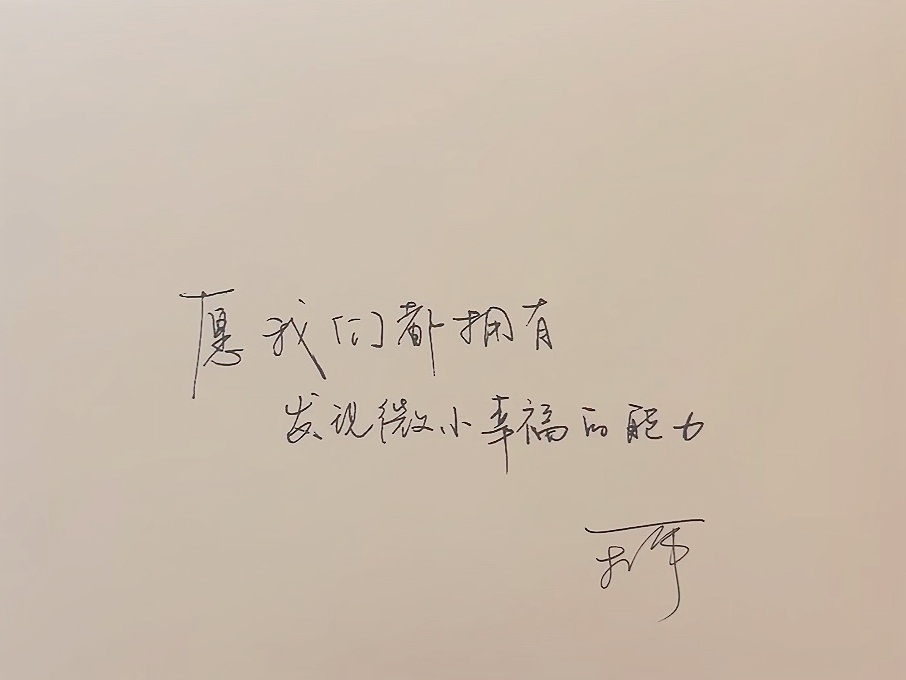 愿我们都拥有
发现微小幸福的能力